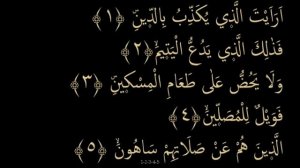 اَرَاَيْتَ الَّذِي يُكَذِّبُ بِالدِّينِ ﴿١﴾
فَذٰلِكَ الَّذِي يَدُعُّ الْيَتِيمَ ﴿٢﴾
وَلَا يَحُضُّ عَلٰى طَعَامِ الْمِسْكِينِ ﴿٣﴾
فَوَيْلٌ لِلْمُصَلِّينَ ﴿٤﴾
الَّذِينَ هُمْ عَنْ صَلَاتِهِمْ سَاهُونَ ﴿٥﴾
1-2-3-4-5